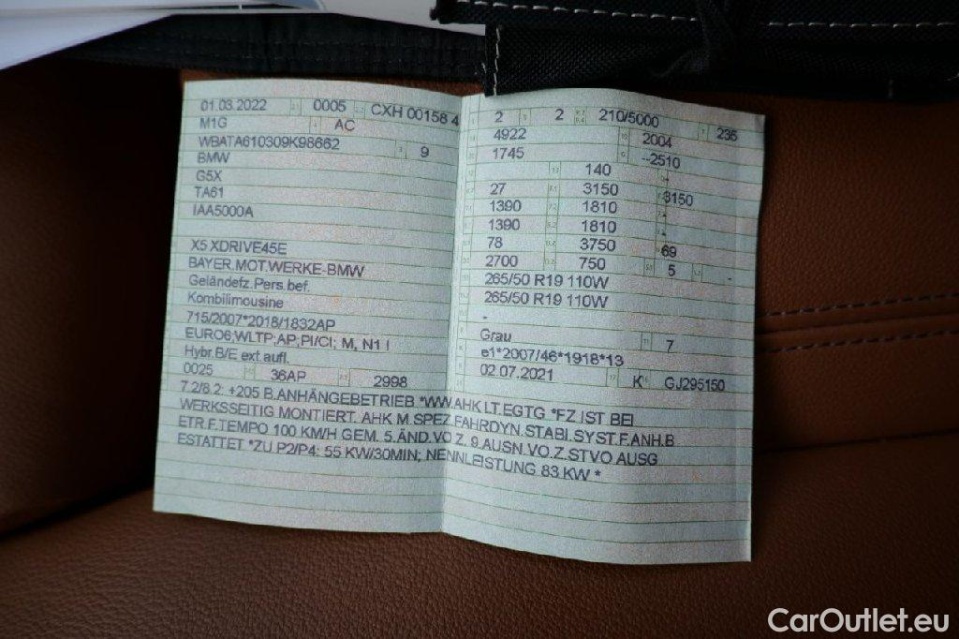 01.03.2022 0005 CXH 00158 4
M1G AC
WBATA610309K98662 9
BMW
G5X
TA61
IAA5000A
X5 XDRIVE45E
BAYER.MOT.WERKE-BMW
Geländefz.Pers.bef.
Kombilimousine
715/2007*2018/1832AP
EURO6;WLTP;AP;PI/CI; M, N1 I
Hybr.B/E ext.aufl.
0025 36AP 2998
2 2 210/5000 235
4922 2004
1745 --2510
140 -
27 3150 3150
1390 1810 -
1390 1810 -
78 3750 69
2700 750 5 -
265/50 R19 110W
265/50 R19 110W
-
Grau 7
e1*2007/46*1918*13
02.07.2021 K GJ295150
7.2/8.2: +205 B.ANHÄNGEBETRIEB *WW.AHK LT.EGTG *FZ IST BEI
WERKSSEITIG MONTIERT. AHK M.SPEZ.FAHRDYN.STABI.SYST.F.ANH.B
ETR.F.TEMPO 100 KM/H GEM. 5.ÄND.VO Z. 9.AUSN.VO.Z.STVO AUSG
ESTATTET *ZU P2/P4: 55 KW/30MIN; NENNLEISTUNG 83 KW *
CarOutlet.eu